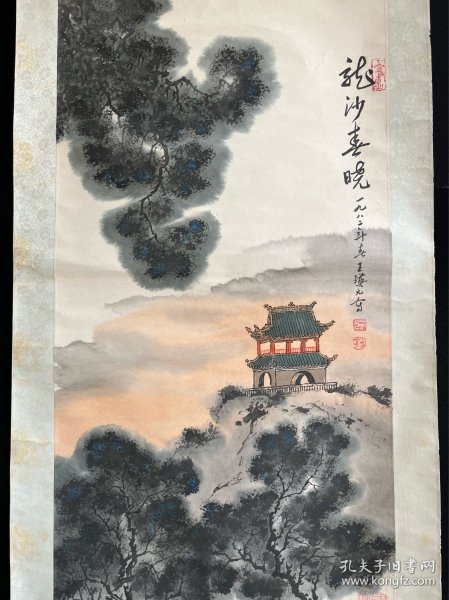 龙沙春晓
一九八二年春王瑛元写
孔夫子旧书网
www.kongfz.com